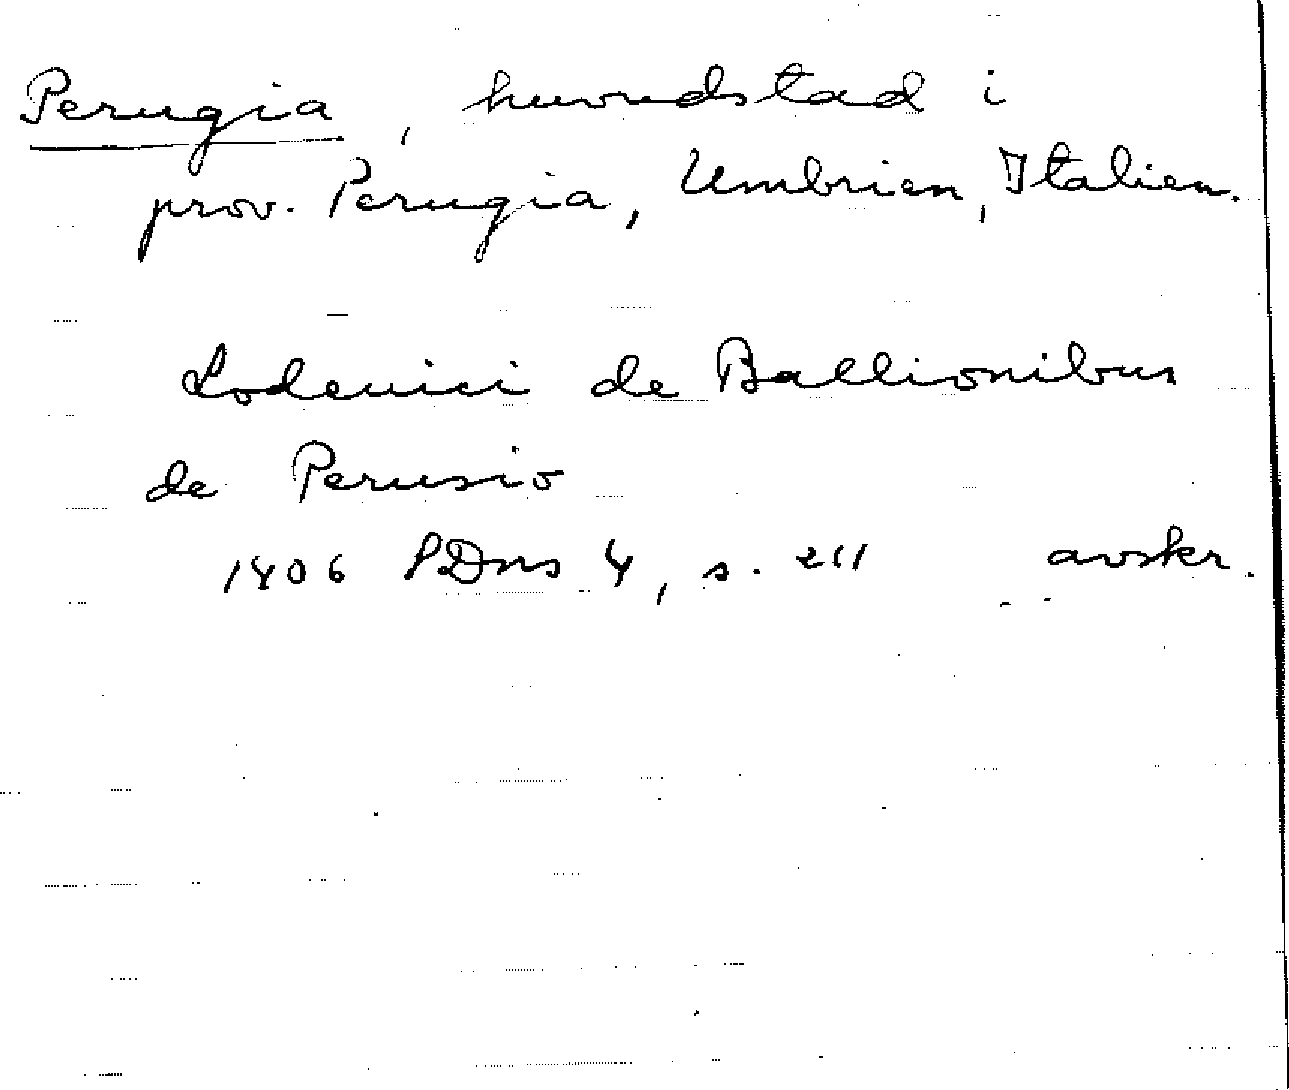 Perugia, huvudstad i
prov. Perugia, Umbrien, Italien.
Lodeuici de Ballionibus
de Perusio
1406 SDns 4, s. 211 avskr.